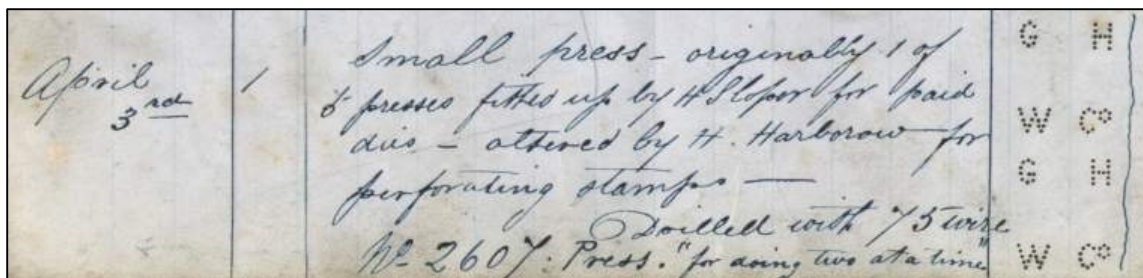 Small press - originally 1 of G H
April 3rd 1 5 presses fitted up by H Sloper for paid
dies - altered by H. Harborow for W Co
perforating stamps — G H
Drilled with 75 wire
No 2607: Press. "for doing two at a time" W Co